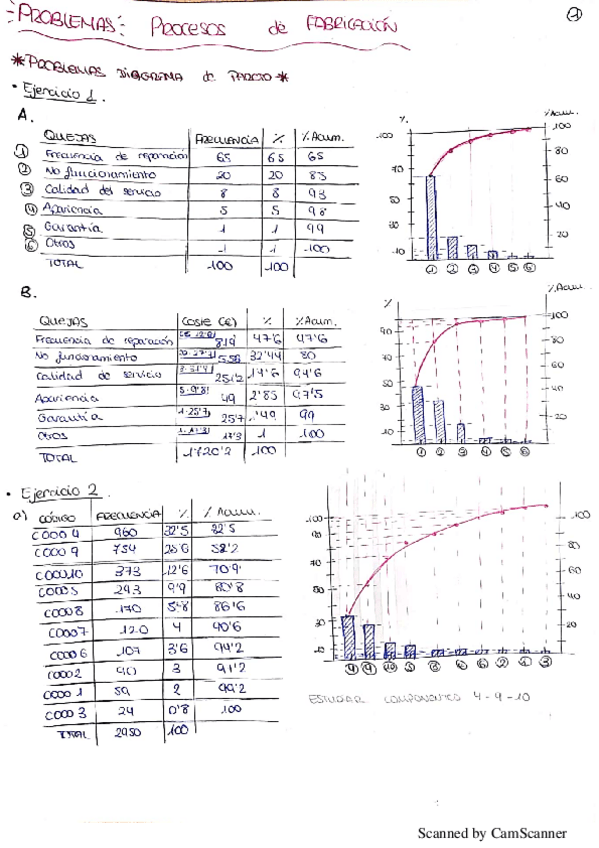 PROBLEMAS: PROCESOS de FABRICACIÓN
1
*PROBLEMAS DIAGRAMA de PARETO*
• Ejercicio 1.
A.
QUEJAS FRECUENCIA % % Acum.
1 Frecuencia de reparación 65 65 65
2 No funcionamiento 20 20 85
3 Calidad del servicio 8 8 93
4 Apariencia 5 5 98
5 Garantía 1 1 99
6 Otros 1 1 100
TOTAL 100 100
% % Acum.
100 100
80
60
40
20
10
1 2 3 4 5 6
B.
QUEJAS Coste (€) % % Acum.
Frecuencia de reparación 819 47'6 47'6
No funcionamiento 558 32'44 80
Calidad de servicio 251'2 14'6 94'6
Apariencia 49 2'85 97'5
Garantía 25'7 1'49 99
Otros 17'3 1 100
TOTAL 1720'2 100
% % Acum.
100
80
60
40
20
1 2 3 4 5 6
• Ejercicio 2.
a) CÓDIGO FRECUENCIA % % Acum.
C000 4 960 32'5 32'5
C000 9 754 25'6 58'2
C00010 373 12'6 70'9
C000 5 293 9'9 80'8
C000 8 170 5'8 86'6
C000 7 120 4 90'6
C000 6 107 3'6 94'2
C000 2 90 3 97'2
C000 1 59 2 99'2
C000 3 24 0'8 100
TOTAL 2950 100
100 100
80
60
40
20
4 9 10 5 8 7 6 2 1 3
ESTUDIAR COMPONENTES 4-9-10
Scanned by CamScanner